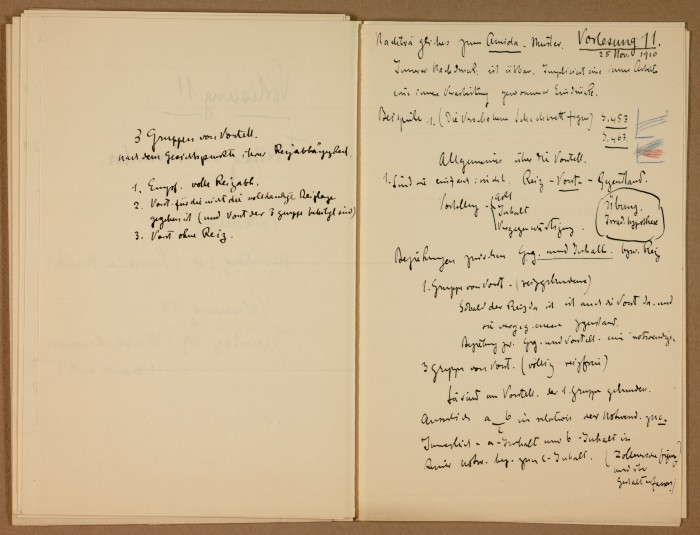 3 Gruppen von Vorstell.
nach dem Gesichtspunkte ihrer Reizabhängigkeit.
1. Empf. volle Reizabh.
2. Vorst. für die nicht die vollständige Reizlage
gegeben ist (und Vorst. der 3 gruppe beteiligt sind)
3. Vorst ohne Reiz.
Nachträgliches zum Muster. Vorlesung 11.
25 Nov. 1910
Innerer Nachdruck ist üben. Impliciert eine innere Arbeit
eine innere Verarbeitung gewonnener Eindrücke.
Beispiele 1. (Die Verschobene Schachbrettfigur) S. 453
S. 463.
Allgemeines über die Vorstell.
1. Sind sie einfach: nicht. Reiz - Vorst - Gegenstand.
Vorstellung - Act
Inhalt
Vergegenwärtigung.
Übung.
Irrad. hypothese
Beziehungen zwischen Geg. und Inhalt bzw. Reiz
1. Gruppe von Vorst - (reizgebundene)
Sobald der Reiz da ist ist auch die Vorst da. und
sie vergeg. einen ggenstand.
Beziehung zw. Geg. und Vorstell. eine notwendige.
3 gruppe von Vorst. (völlig reizfrei)
für sind an Vorstell. der 1 Gruppe gebunden.
a b in relation der Notwend. zu c.
c
Innerlich - a-Inhalt und b-Inhalt in
keiner notw. bez. zum c-Inhalt. (Zöllnersche figur
und über
Gestalterfassen)